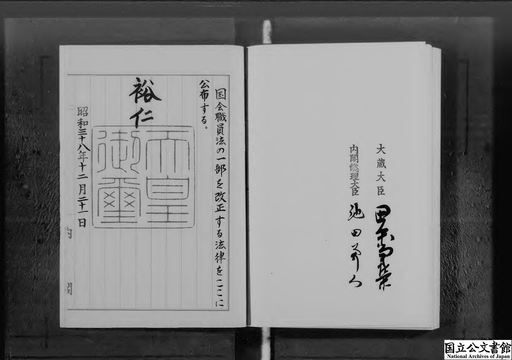 国会職員法の一部を改正する法律をここに
公布する。
裕仁
天皇
御璽
昭和三十八年十二月二十一日
内閣
大蔵大臣
田中角榮
内閣総理大臣
池田勇人
国立公文書館
National Archives of Japan